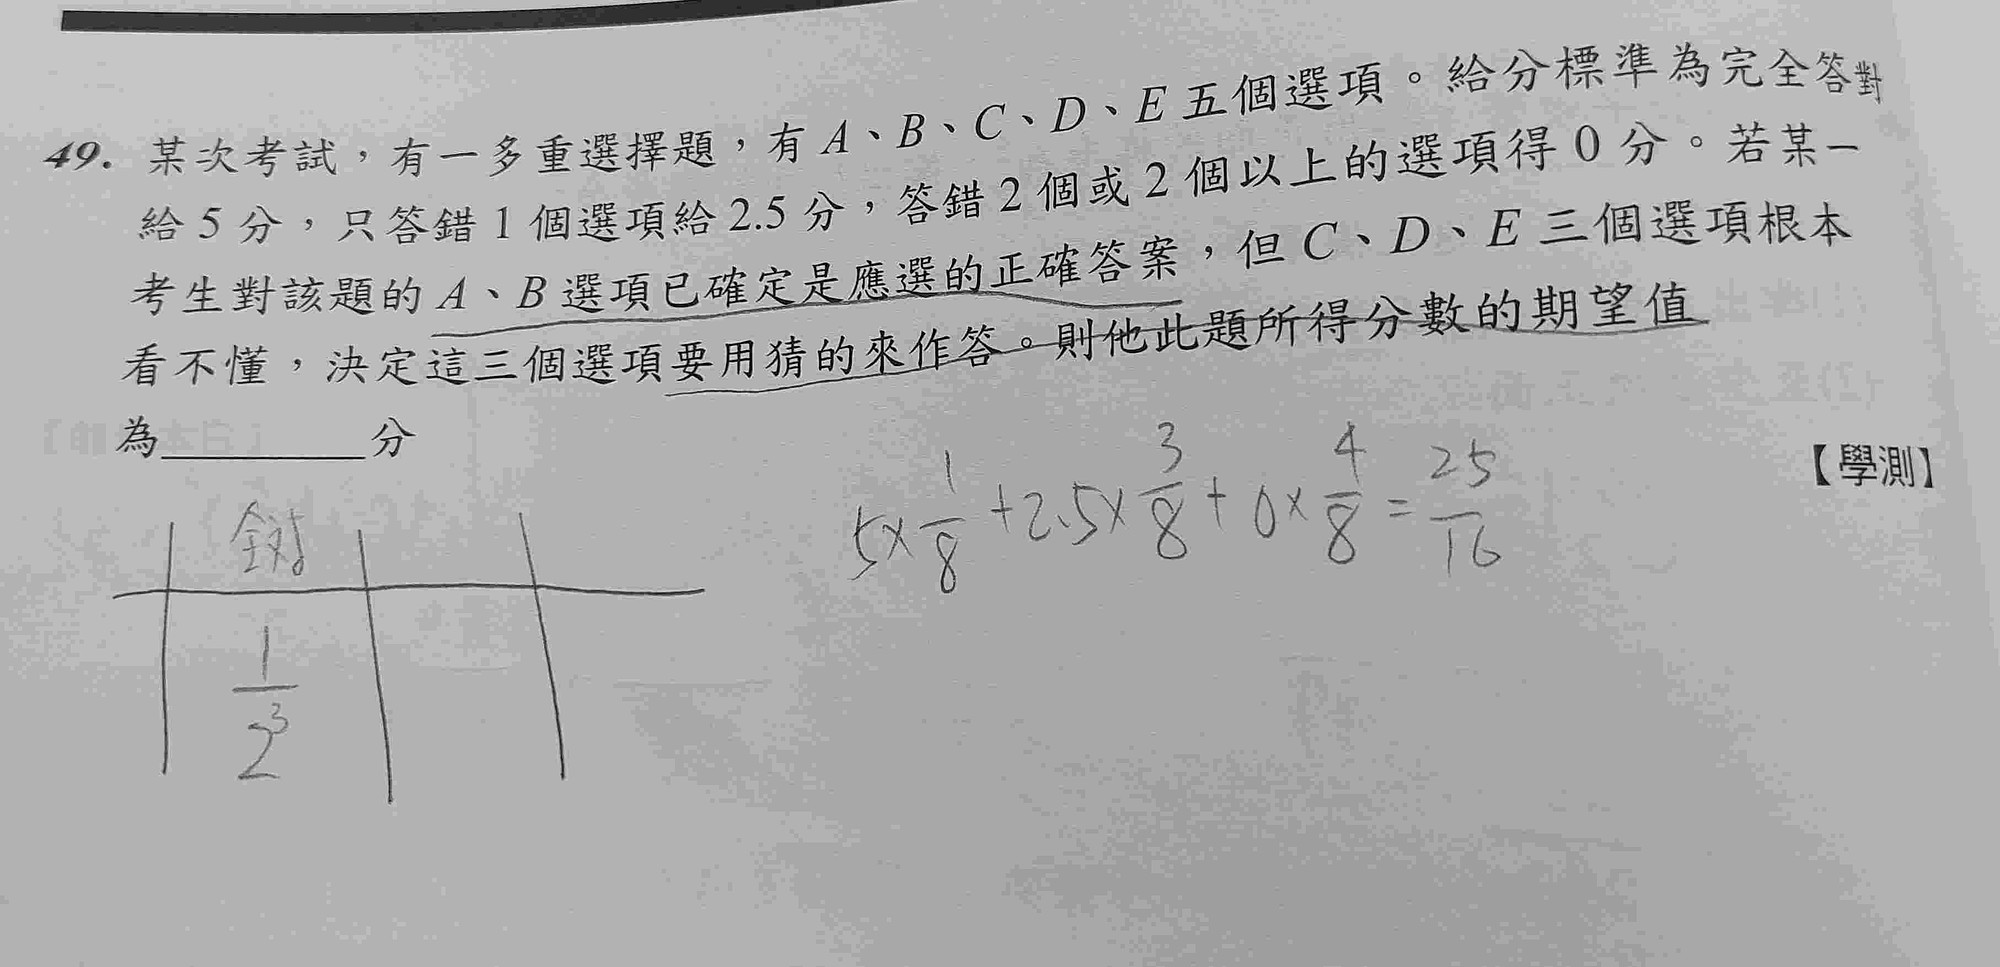 49. 某次考試，有一多重選擇題，有 A、B、C、D、E 五個選項。給分標準為完全答對
給 5 分，只答錯 1 個選項給 2.5 分，答錯 2 個或 2 個以上的選項得 0 分。若某一
考生對該題的 A、B 選項已確定是應選的正確答案，但 C、D、E 三個選項根本
看不懂，決定這三個選項要用猜的來作答。則他此題所得分數的期望值
為________分
【學測】
5×1/8+2.5×3/8+0×4/8=25/16
全對
1/2³